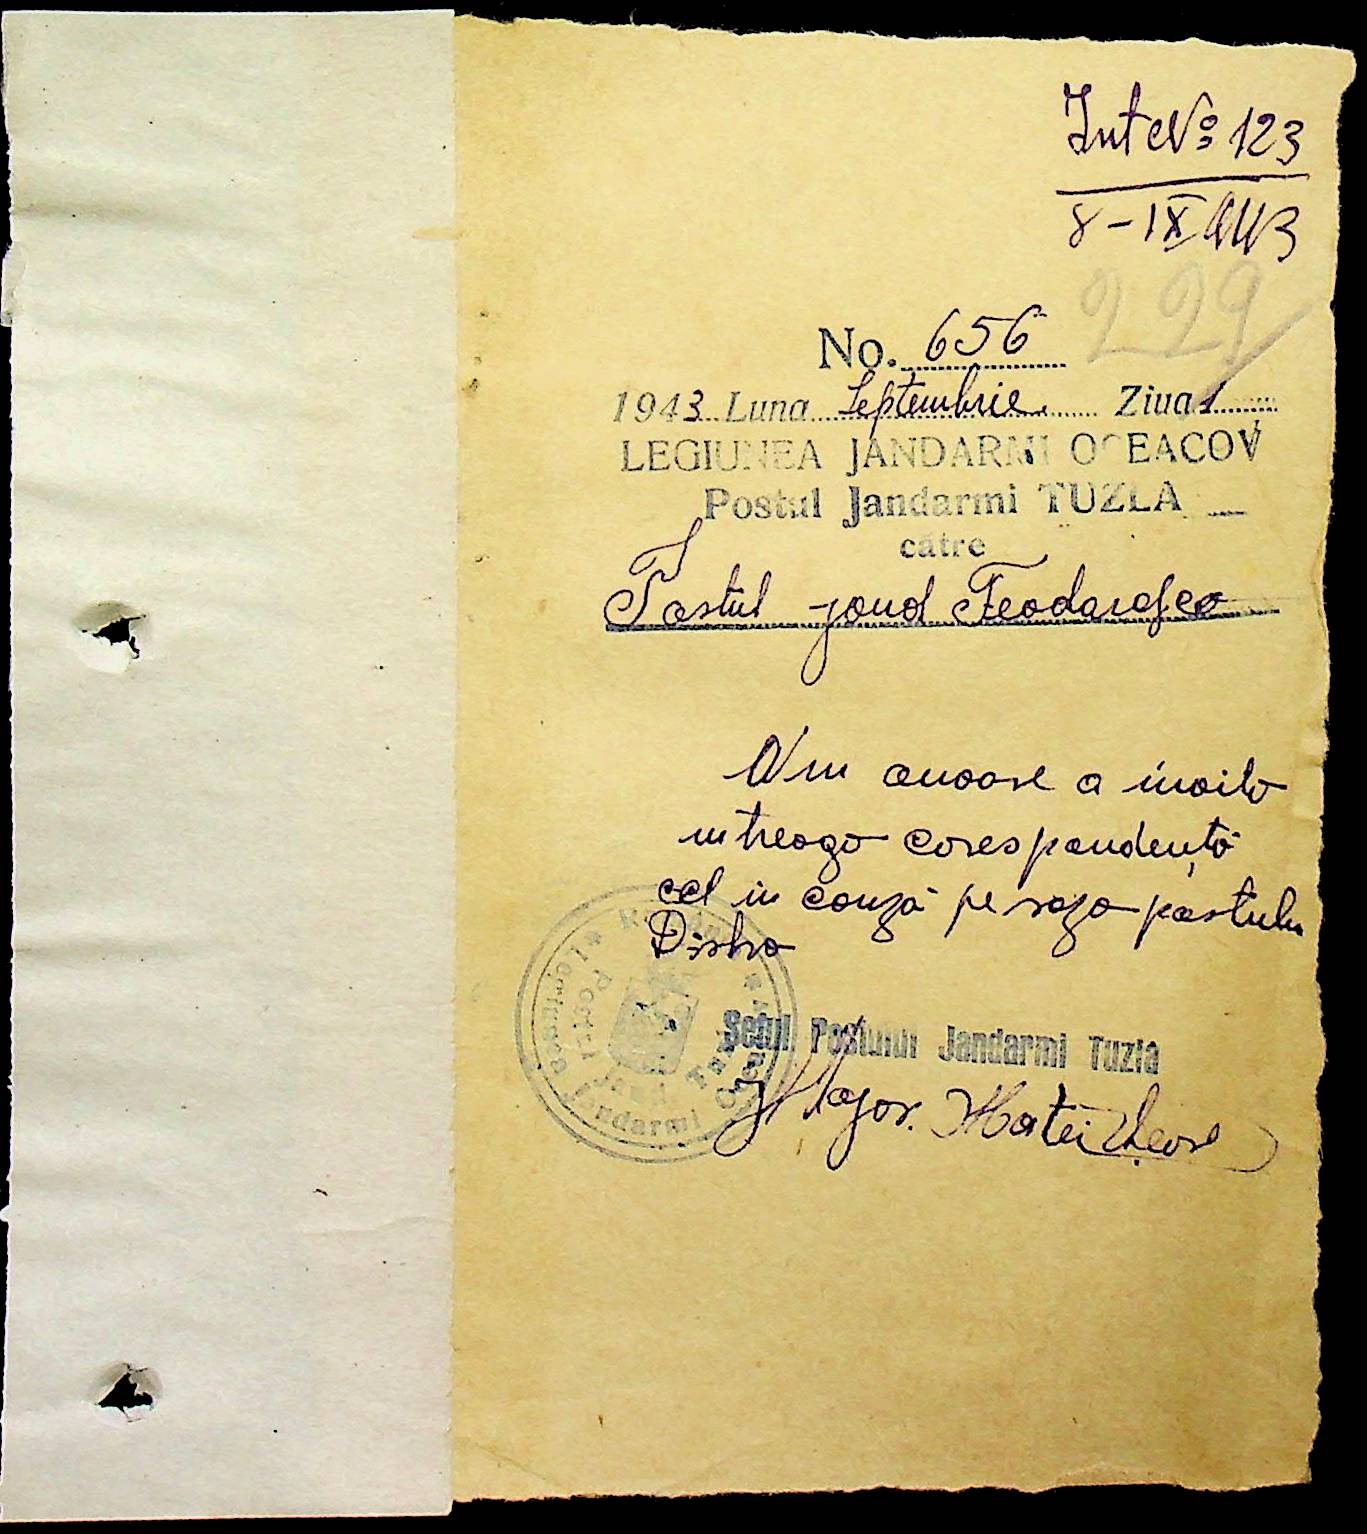 Int No 123
8-IX 943
229
No. 656
1943 Luna Septembrie Ziua 1
LEGIUNEA JANDARMI OCEACOV
Postul Jandarmi TUZLA
către
Postul jand
Am onoare a inainta
intreaga corespondență
cel in cauză pe raza postului
Șeful Postului Jandarmi Tuzla
Major. Matei
Legiunea Jandarmi
Postul Jand Tuzla